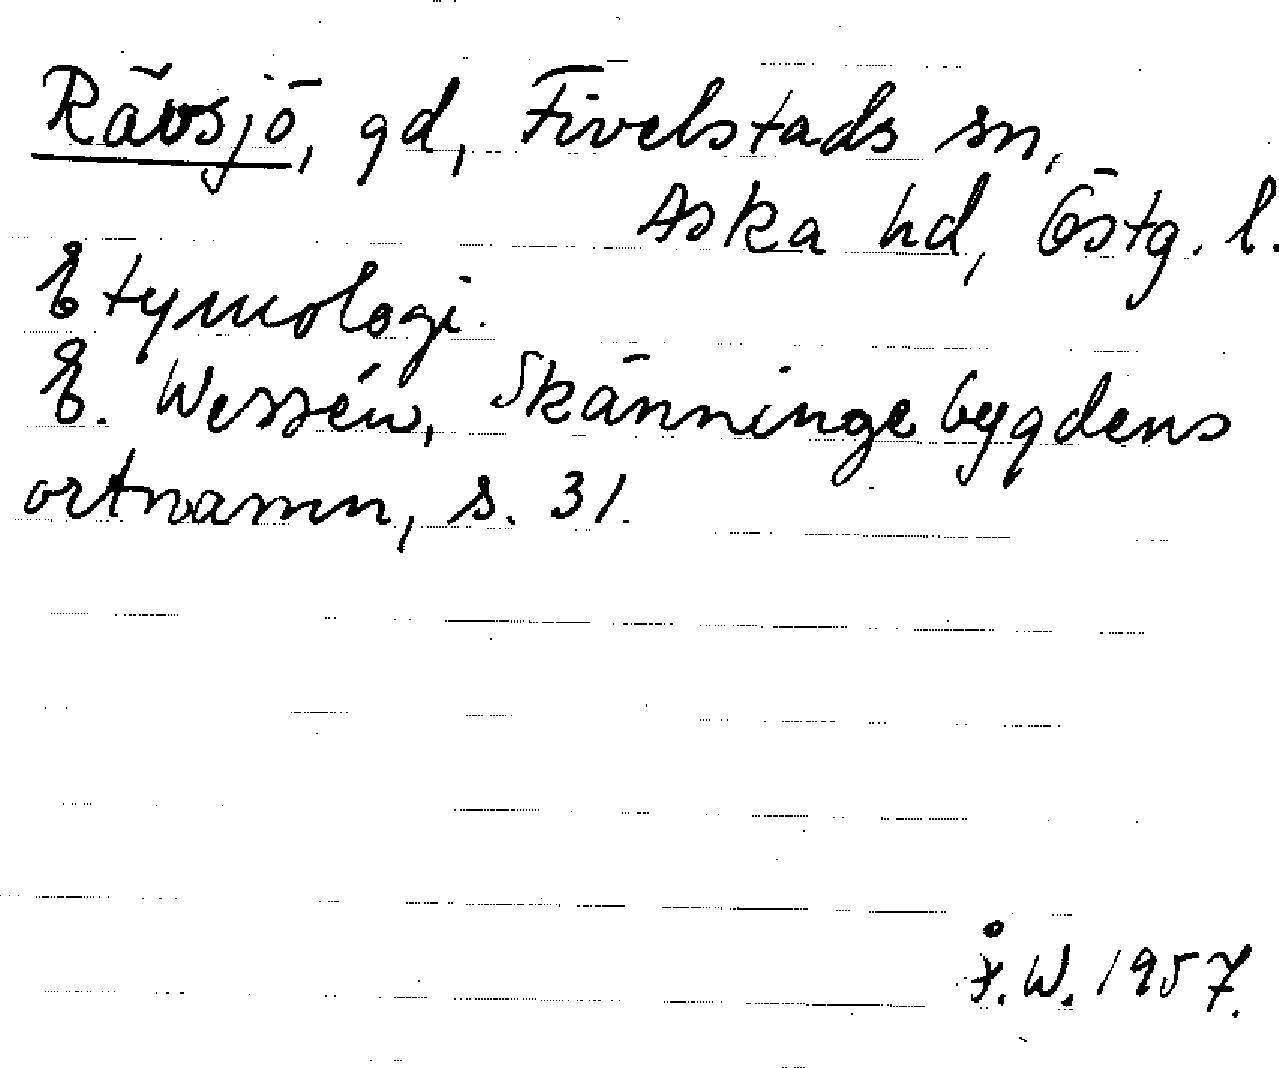 Rävsjö, gd, Fivelstads sn,
Aska hd, Östg. l.
Etymologi.
E. Wessén, Skänningebygdens
ortnamn, s. 31.
Å. W. 1957.